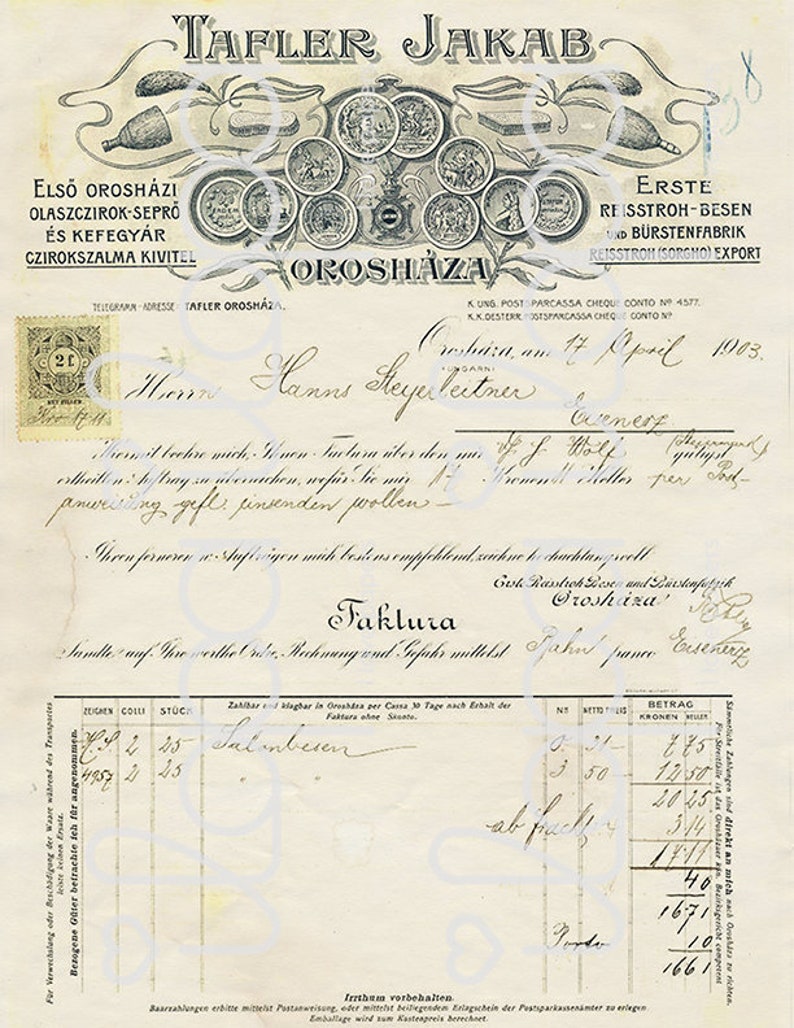 TAFLER JAKAB
38
ELSŐ OROSHÁZI
OLASZCZIROK-SEPRŐ
ÉS KEFEGYÁR
CZIROKSZALMA KIVITEL
ERSTE
REISSTROH-BESEN
UND BÜRSTENFABRIK
REISSTROH (SORGHO) EXPORT
OROSHÁZA
TELEGRAMM-ADRESSE: TAFLER OROSHÁZA.
K. UNG. POSTSPARCASSA CHEQUE CONTO No 4577.
K.K. OESTERR. POSTSPARCASSA CHEQUE CONTO No
Orosháza, am 17 April 1903.
(UNGARN)
2 f.
KÉT FILLÉR
Kro 17.11
Herrn Hanns Steyerleitner
Eisenerz
Hiermit beehre mich, Ihnen Factura über den mir
Wolf
gütigst
ertheilten Auftrag zu überreichen, wofür Sie mir 17 Kronen 11 Heller per Post-
anweisung gefl. einsenden wollen
Ihren ferneren w. Aufträgen mich bestens empfehlend, zeichne hochachtungsvoll
Erste Reisstroh Besen und Bürstenfabrik
Orosháza
Faktura
Sandte auf Ihre werthe Ordre, Rechnung und Gefahr mittelst Bahn franco Eisenerz
ZEICHEN COLLI STÜCK
Zahlbar und klagbar in Orosháza per Cassa 30 Tage nach Erhalt der
Faktura ohne Skonto.
No NETTO PREIS BETRAG
KRONEN HELLER
H.S. 2 25 Salonbesen 0 31 7 75
4957 2 25 " " 3 50 12 50
20 25
ab Fracht 3 14
17 11
40
16 71
Porto 10
16 61
Für Verwechslung oder Beschädigung der Waare während des Transportes
leiste keinen Ersatz.
Bezogene Güter betrachte ich für angenommen.
Sämmtliche Zahlungen sind direkt an mich nach Orosháza zu richten.
Für Streitfälle ist das Orosházaer kgn. Bezirksgericht competent
Irrthum vorbehalten.
Baarzahlungen erbitte mittelst Postanweisung, oder mittelst beiliegendem Erlagschein der Postsparkassenämter zu erlegen.
Emballage wird zum Kostenpreis berechnet.